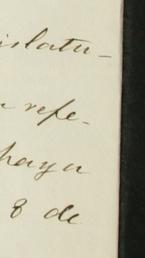 islatu-
refe-
haya
8 de